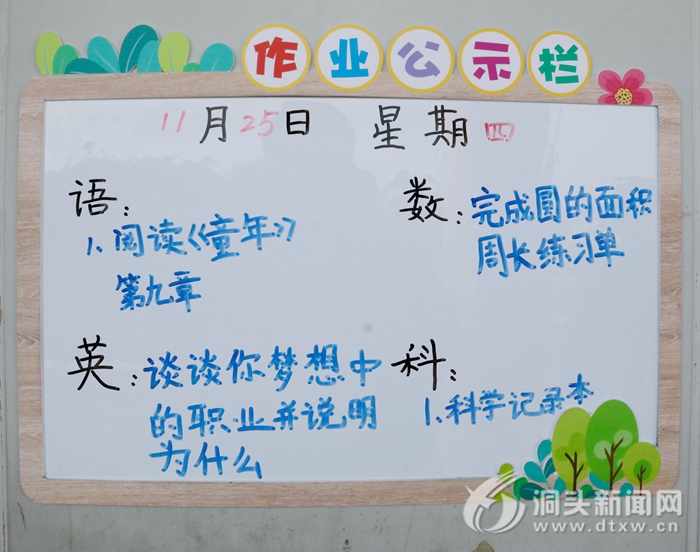 作业公示栏
11月25日 星期四
语:
1. 阅读《童年》
第九章
数: 完成圆的面积
周长练习单
英: 谈谈你梦想中
的职业并说明
为什么
科:
1. 科学记录本
洞头新闻网
www.dtxw.cn